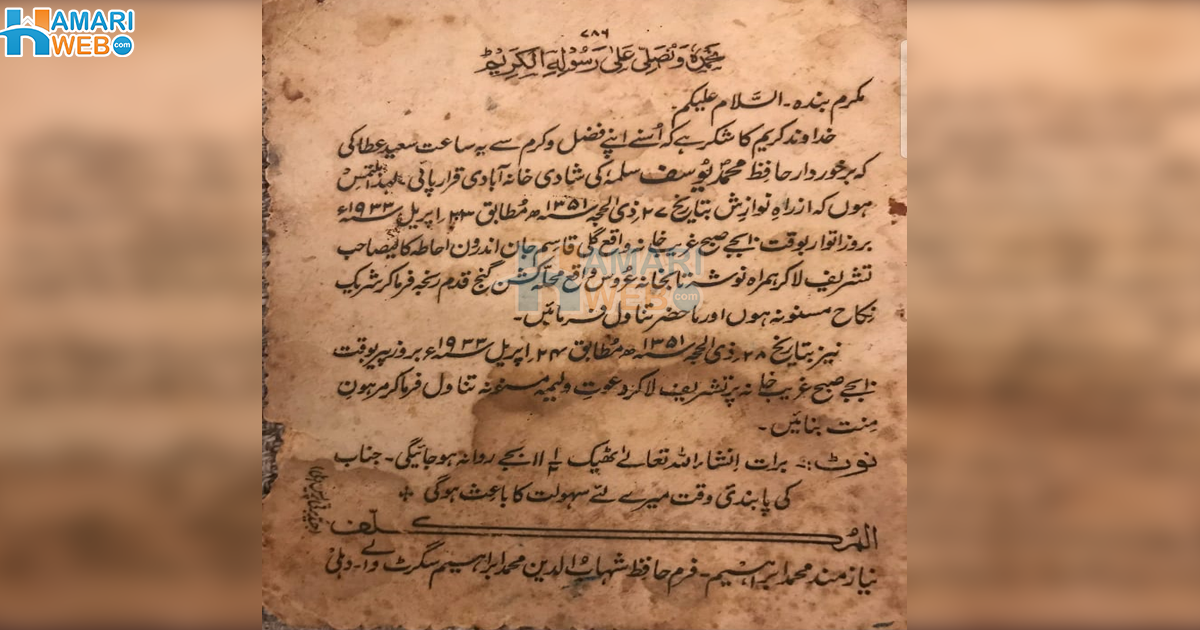 HAMARI
WEB.com
۷۸۶
نحمدہٗ ونصلی علیٰ رسولہ الکریم
مکرم بندہ۔ السَّلام علیکم
خداوند کریم کا شکر ہے کہ اُسنے اپنے فضل وکرم سے یہ ساعت سعید عطا کی
کہ برخوردار حافظ محمدؐ یوسف سلمہٗ کی شادی خانہ آبادی قرار پائی۔ لہٰذا ملتمس
ہوں کہ از راہ نوازش بتاریخ ۲۷؍ذی الحجہ سنہ ۱۳۵۱ھ مُطابق ۲۳؍اپریل سنہ ۱۹۳۳ء
بروز اتوار بوقت ۱۰ بجے صبح غریب خانہ واقع گلی قاسم جان اندرون احاطہ کالیصاحب
تشریف لاکر ہمراہ نوشہ تا بخانہ عُروس واقع محلہ کشن گنج قدم رنجہ فرما کر شریک
نکاح مسنونہ ہوں اور ماحضر تناول فرمائیں۔
نیز بتاریخ ۲۸؍ذی الحجہ سنہ ۱۳۵۱ھ مُطابق ۲۴؍اپریل سنہ ۱۹۳۳ء بروز پیر بوقت
۱۰ بجے صبح غریب خانہ پر تشریف لاکر دعوت ولیمہ مسنونہ تناول فرما کر مرہون
مِنت بنائیں۔
نوٹ:۔ برات اِنشاء اللہ تعالےٰ ٹھیک ۱۱ ۱/۲ بجے روانہ ہوجائیگی۔ جناب
کی پابندی وقت میرے لئے سہولت کا باعث ہوگی
المُکلف
نیازمند محمد ابراہیم۔ فرم حافظ شہاب الدین محمد ابراہیم سگرٹ والے۔ دہلی
HAMARI
WEB.com